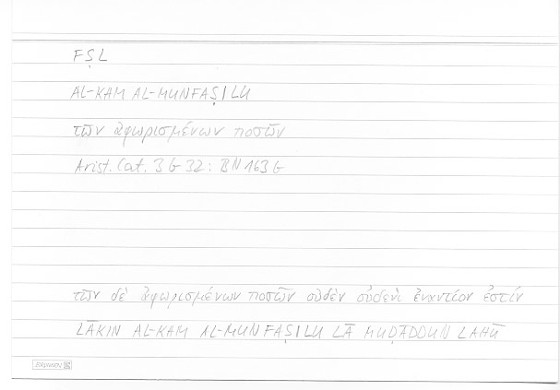 FṢL
AL-KAM AL-MUNFAṢILU
τῶν ἀφωρισμένων ποσῶν
Arist. Cat. 3 b 32 : BN 163 b
τῶν δὲ ἀφωρισμένων ποσῶν οὐδὲν οὐδενὶ ἐναντίον ἐστίν
LĀKIN AL-KAM AL-MUNFAṢILU LĀ MUḌĀDDUN LAHŪ
BRUNNEN